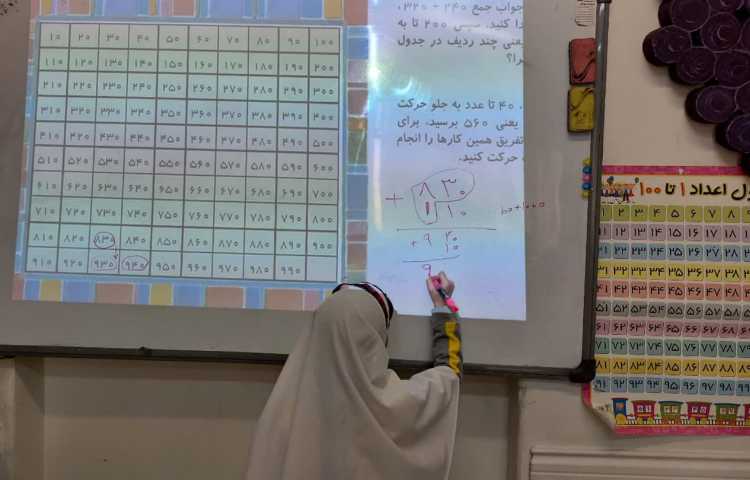 ۱۰ ۲۰ ۳۰ ۴۰ ۵۰ ۶۰ ۷۰ ۸۰ ۹۰ ۱۰۰
۱۱۰ ۱۲۰ ۱۳۰ ۱۴۰ ۱۵۰ ۱۶۰ ۱۷۰ ۱۸۰ ۱۹۰ ۲۰۰
۲۱۰ ۲۲۰ ۲۳۰ ۲۴۰ ۲۵۰ ۲۶۰ ۲۷۰ ۲۸۰ ۲۹۰ ۳۰۰
۳۱۰ ۳۲۰ ۳۳۰ ۳۴۰ ۳۵۰ ۳۶۰ ۳۷۰ ۳۸۰ ۳۹۰ ۴۰۰
۴۱۰ ۴۲۰ ۴۳۰ ۴۴۰ ۴۵۰ ۴۶۰ ۴۷۰ ۴۸۰ ۴۹۰ ۵۰۰
۵۱۰ ۵۲۰ ۵۳۰ ۵۴۰ ۵۵۰ ۵۶۰ ۵۷۰ ۵۸۰ ۵۹۰ ۶۰۰
۶۱۰ ۶۲۰ ۶۳۰ ۶۴۰ ۶۵۰ ۶۶۰ ۶۷۰ ۶۸۰ ۶۹۰ ۷۰۰
۷۱۰ ۷۲۰ ۷۳۰ ۷۴۰ ۷۵۰ ۷۶۰ ۷۷۰ ۷۸۰ ۷۹۰ ۸۰۰
۸۱۰ ۸۲۰ ۸۳۰ ۸۴۰ ۸۵۰ ۸۶۰ ۸۷۰ ۸۸۰ ۸۹۰ ۹۰۰
۹۱۰ ۹۲۰ ۹۳۰ ۹۴۰ ۹۵۰ ۹۶۰ ۹۷۰ ۹۸۰ ۹۹۰
جواب جمع ۲۴۰ + ۳۲۰،
دا کنید. سپس ۲۰۰ تا به
یعنی چند ردیف در جدول
را؟
۴۰ تا عدد به جلو حرکت
یعنی ۵۶۰ برسید. برای
تفریق همین کارها را انجام
حرکت کنید.
+ ۸۳۰
۱۱۰
+ ۹۲۰
۱۰
۹
ل اعداد ۱ تا ۱۰۰
1 ۲ ۳ ۴ ۵ ۶ ۷ ۸
۱۱ ۱۲ ۱۳ ۱۴ ۱۵ ۱۶ ۱۷ ۱۸
۲۱ ۲۲ ۲۳ ۲۴ ۲۵ ۲۶ ۲۷ ۲۸
۳۱ ۳۲ ۳۳ ۳۴ ۳۵ ۳۶ ۳۷ ۳۸
۴۱ ۴۲ ۴۳ ۴۴ ۴۵ ۴۶ ۴۷ ۴۸
۵۱ ۵۲ ۵۳ ۵۴ ۵۵ ۵۶ ۵۷ ۵۸
۶۱ ۶۲ ۶۳ ۶۴ ۶۵ ۶۶ ۶۷ ۶۸
۷۱ ۷۲ ۷۳ ۷۴ ۷۵ ۷۶ ۷۷ ۷۸
۸۱ ۸۲ ۸۳ ۸۴ ۸۵ ۸۶ ۸۷ ۸۸
۹۱ ۹۲ ۹۳ ۹۴ ۹۵ ۹۶ ۹۷ ۹۸